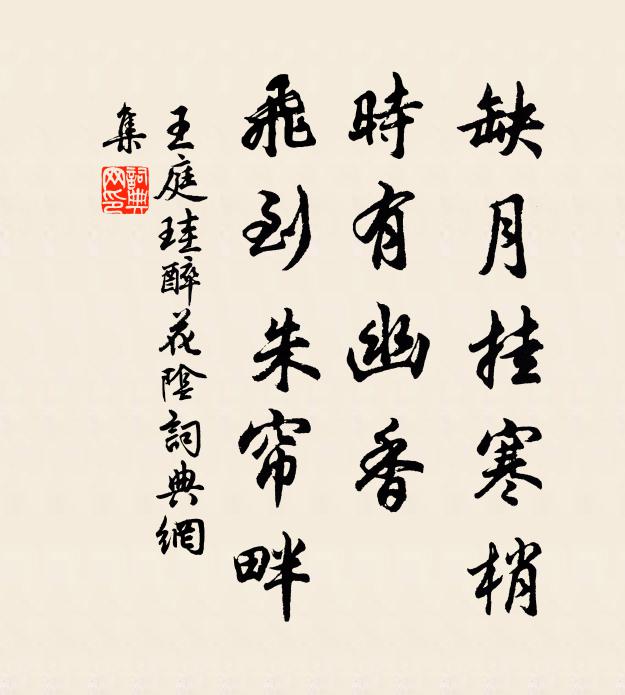 缺月挂寒梢
時有幽香
飛到朱帘畔
王庭珪醉花陰詞典網
集
詞典
网印